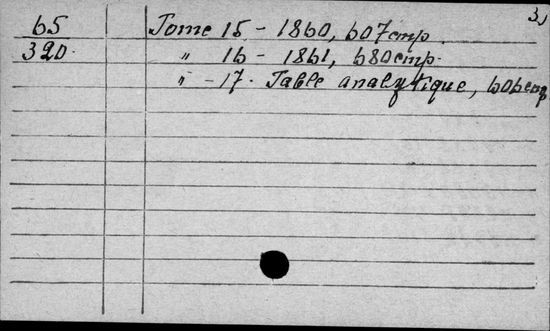 3)
65 Tome 15 - 1860, 607 стр.
320. " 16 - 1861, 680 стр.
" - 17. Table analytique, 606 стр